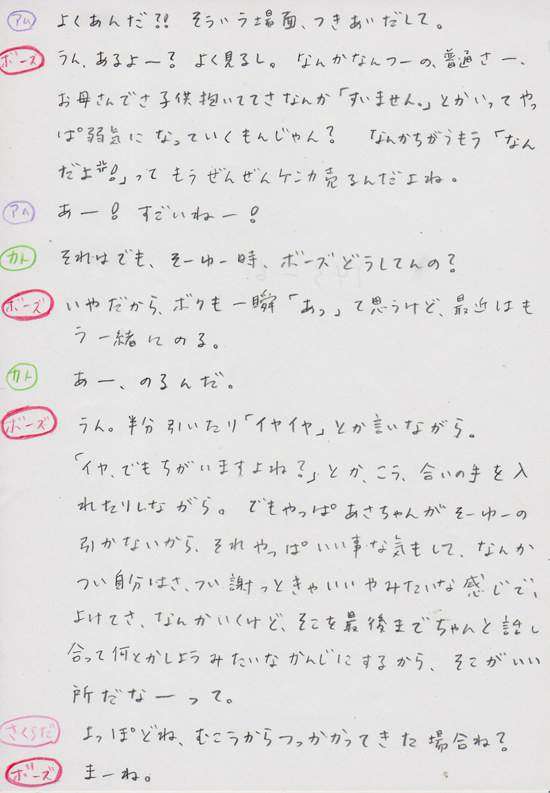 アム よくあんだ?! そういう場面、つきあいだして。
ボーズ うん、あるよー? よく見るし。 なんかなんつーの、普通さー、
お母さんでさ子供抱いててさなんか「すいません。」とかいってやっ
ぱ弱気になっていくもんじゃん? なんかちがうもう「なん
だよ!」ってもうぜんぜんケンカ売るんだよね。
アム あー! すごいねー!
カト それはでも、そーゆー時、ボーズどうしてんの?
ボーズ いやだから、ボクも一瞬「あっ」て思うけど、最近はも
う一緒にのる。
カト あー、のるんだ。
ボーズ うん。半分引いたり「イヤイヤ」とか言いながら。
「イヤ、でもちがいますよね?」とか、こう、合いの手を入
れたりしながら。 でもやっぱあさちゃんがそーゆーの
引かないから、それやっぱいい事な気もして、なんか
つい自分はさ、つい謝っときゃいいやみたいな感じで、
よけてさ、なんかいくけど、そこを最後までちゃんと話し
合って何とかしようみたいなかんじにするから、そこがいい
所だなーって。
さくらだ よっぽどね、むこうからつっかかってきた場合ね?
ボーズ まーね。